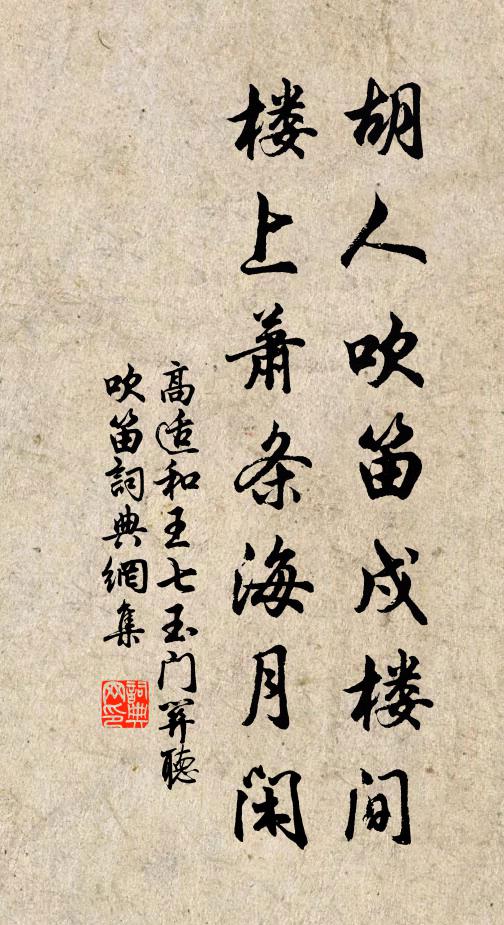 胡人吹笛戍楼间
楼上萧条海月闲
高适和王七玉门关听
吹笛词典網集
詞典
网印